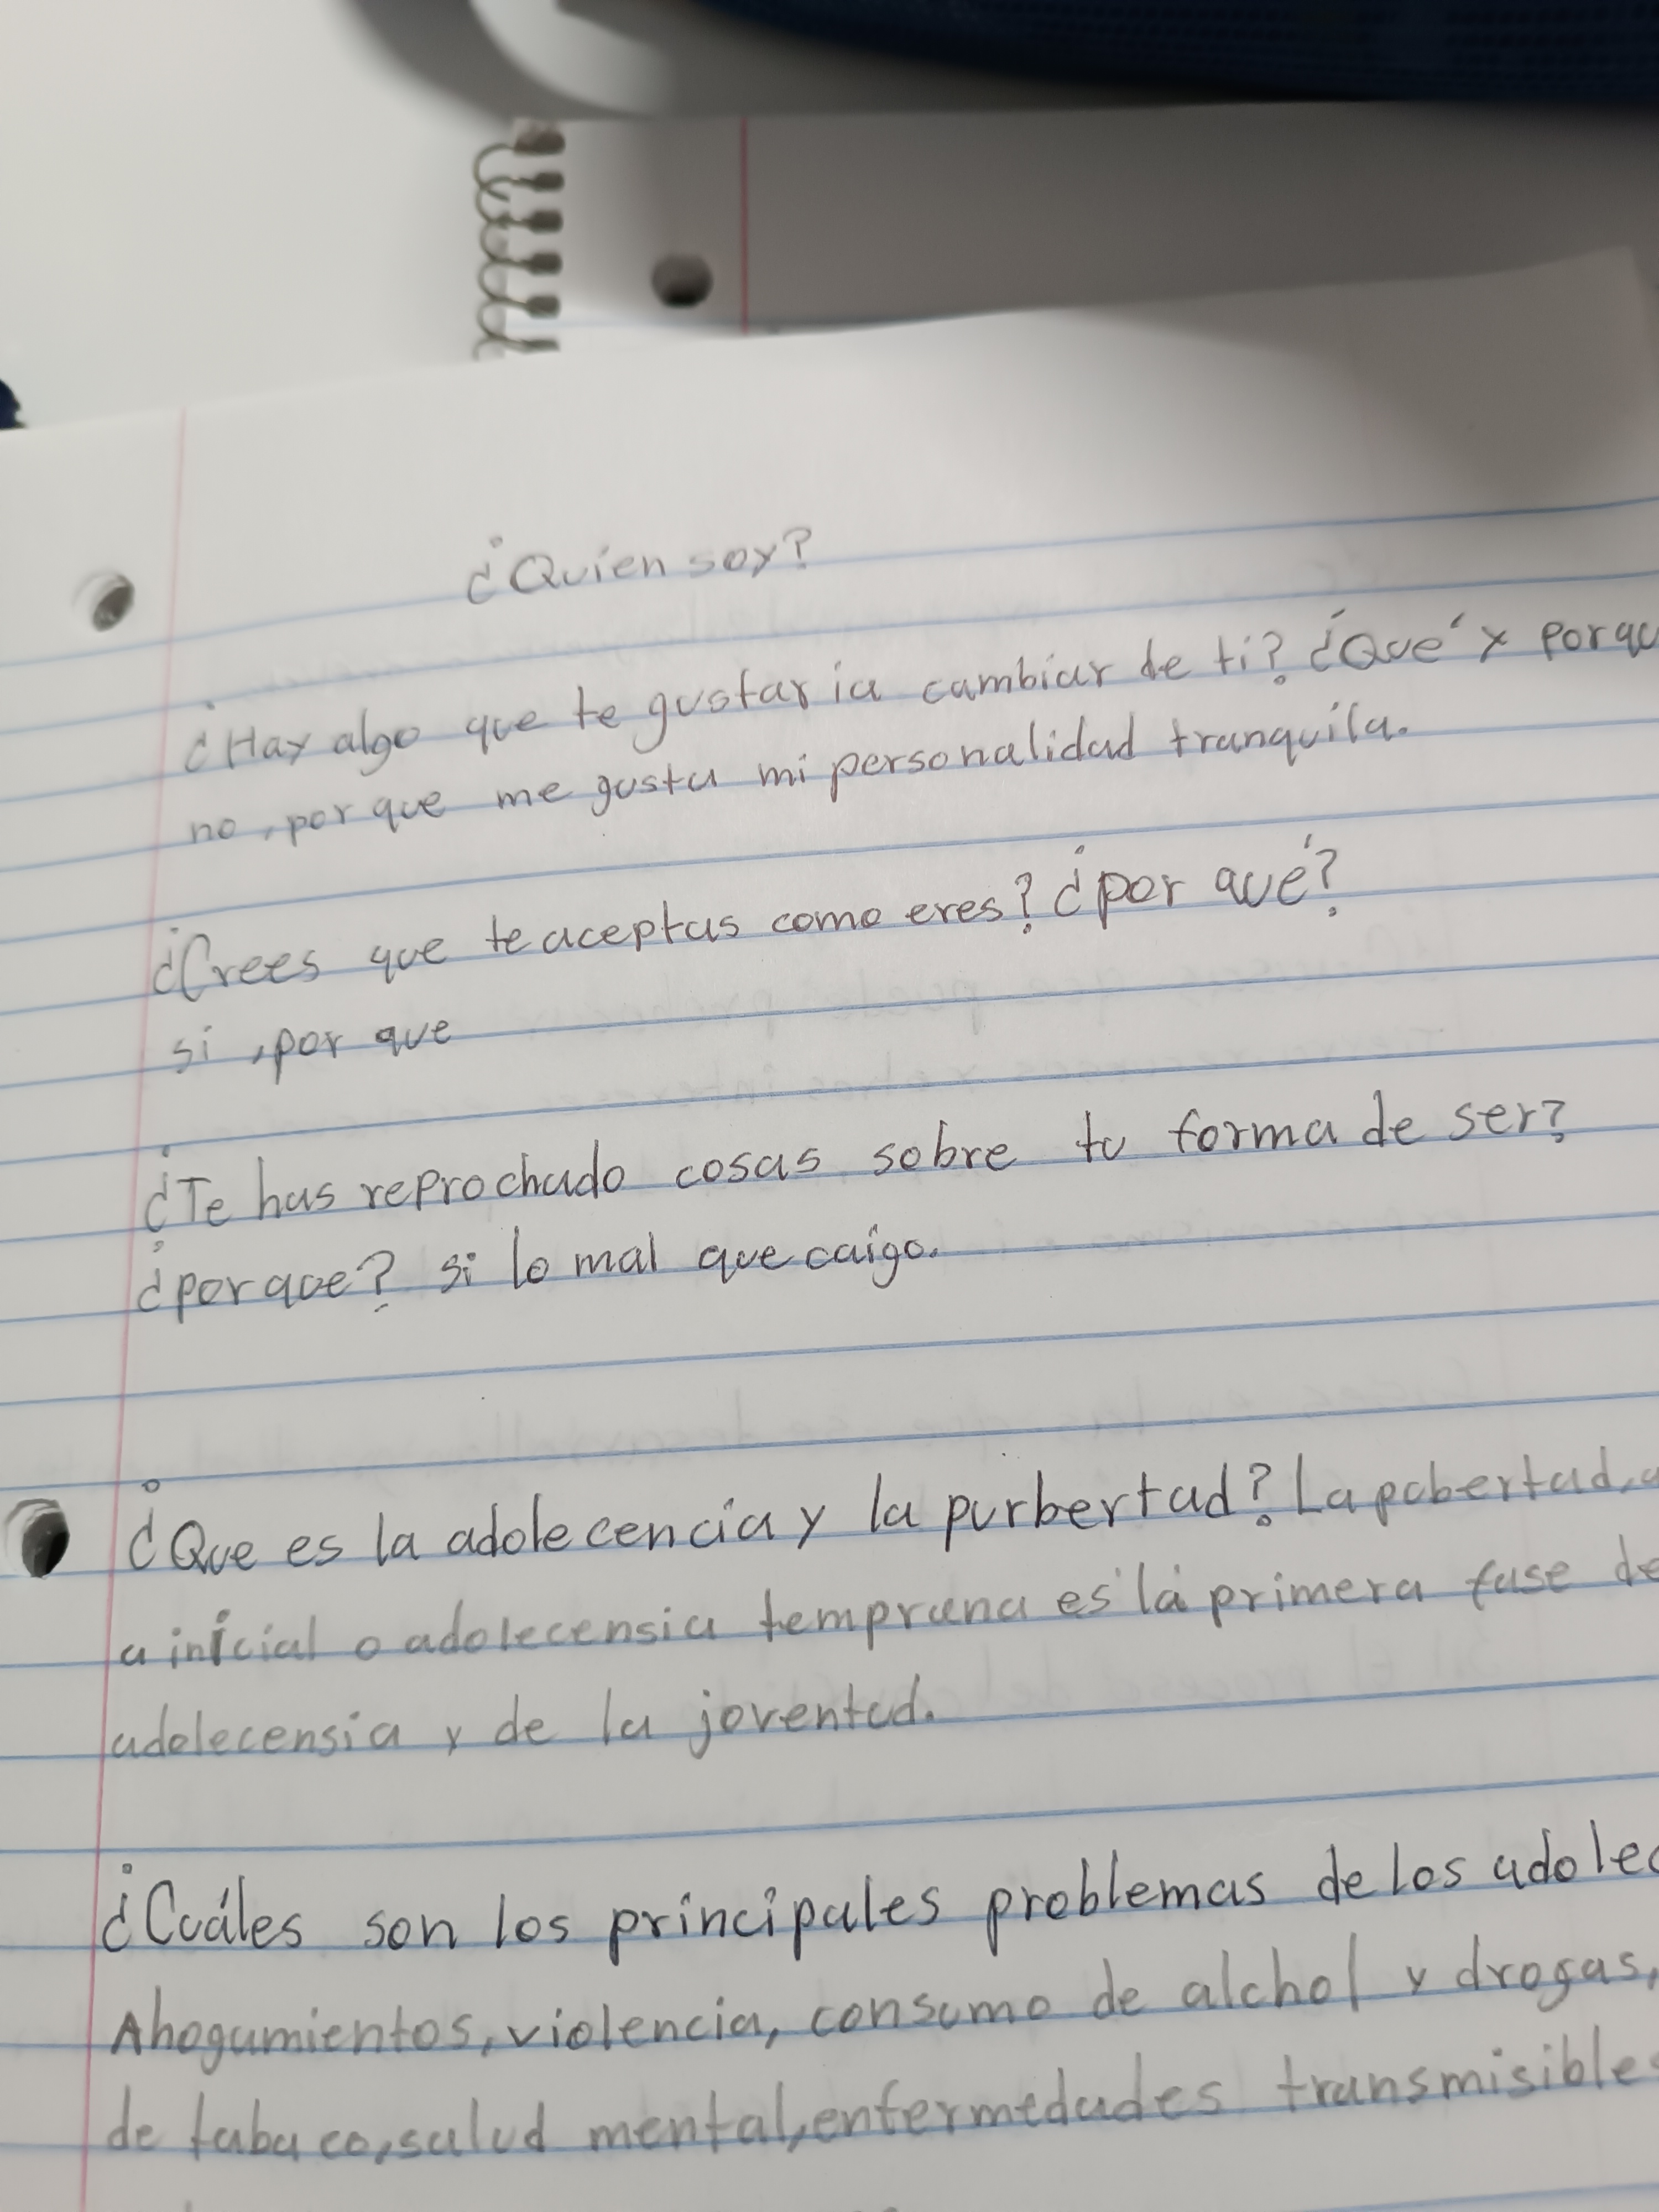 ¿Quien soy?
¿Hay algo que te gustaria cambiar de ti? ¿Qué y porqu
no, por que me gusta mi personalidad tranquila.
¿Crees que te aceptas como eres? ¿por qué?
si, por que
¿Te has reprochado cosas sobre tu forma de ser?
¿por que? si lo mal que caigo.
¿Que es la adolecencia y la purbertad? La pobertad,
a inicial o adolecensia temprana es la primera fase de
adolecensia y de la joventud.
¿Cuáles son los principales problemas de los adolec
Ahogamientos, violencia, consumo de alchol y drogas,
de tabaco, salud mental, enfermedades transmisibles